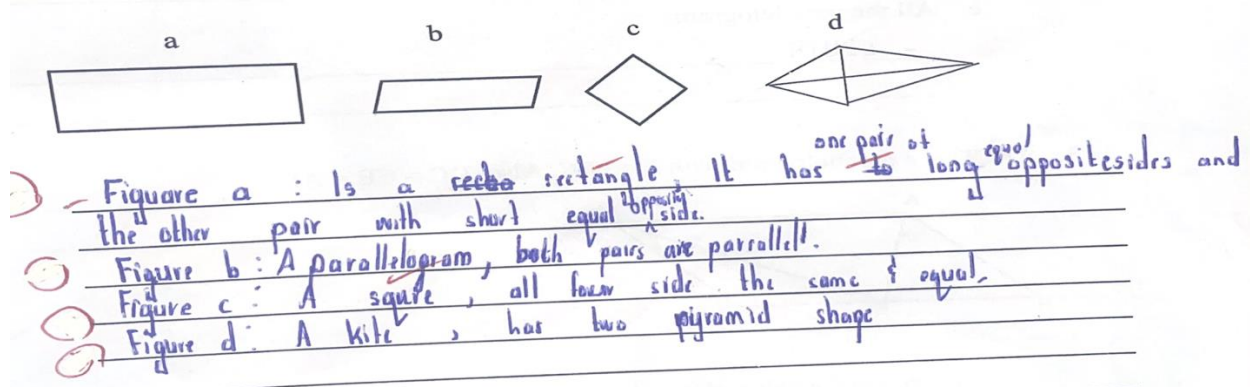 a b c d
Fiquare a : Is a rectangle, It has one pair of long equal oppositesides and
the other pair with short equal opposity side.
Figure b : A parallelogram, both pairs are parrallell.
Figure c : A squre, all four side the same & equal.
Figure d : A kite, has two pyramid shape